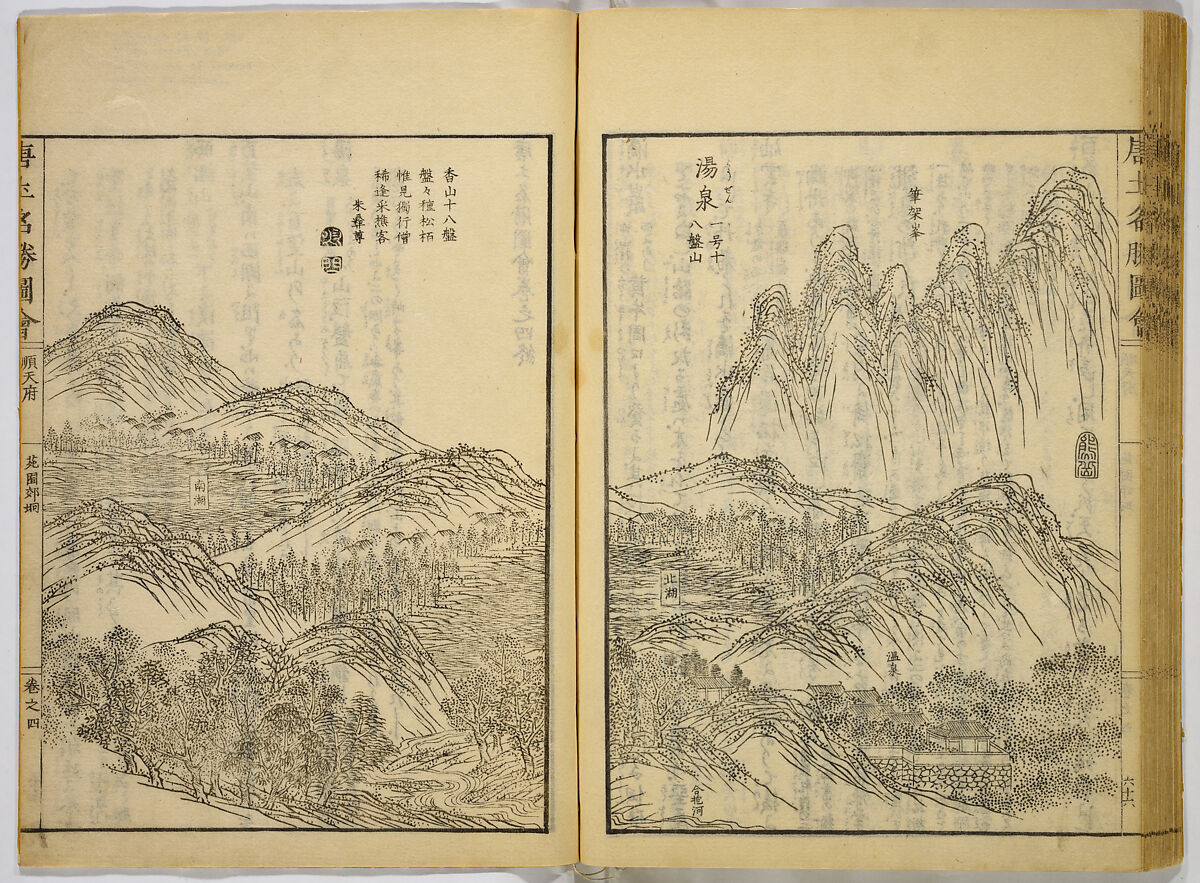 唐土名勝圖會
六十六
熊岳
筆架峯
湯泉
とうせん
一号十
八盤山
北湖
温泉
香山十八盤
盤々檀松栢
惟見獨行僧
稀逢采樵客
朱彝尊
南湖
唐土名勝圖會
順天府
苑囿郊坰
巻之四